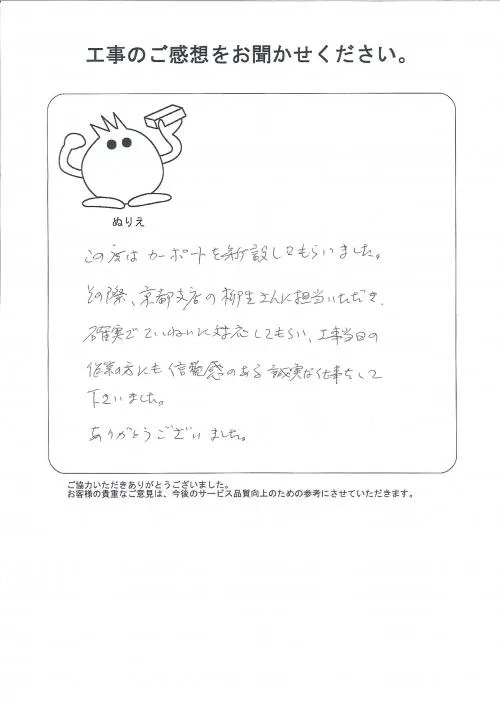 工事のご感想をお聞かせください。
ぬりえ
この度はカーポートを新設してもらいました。
その際、京都支店の柳生さんに担当いただき、
確実でていねいに対応してもらい、工事当日の
作業の方にも信頼感のある誠実な仕事をして
下さいました。
ありがとうございました。
ご協力いただきありがとうございました。
お客様の貴重なご意見は、今後のサービス品質向上のための参考にさせていただきます。